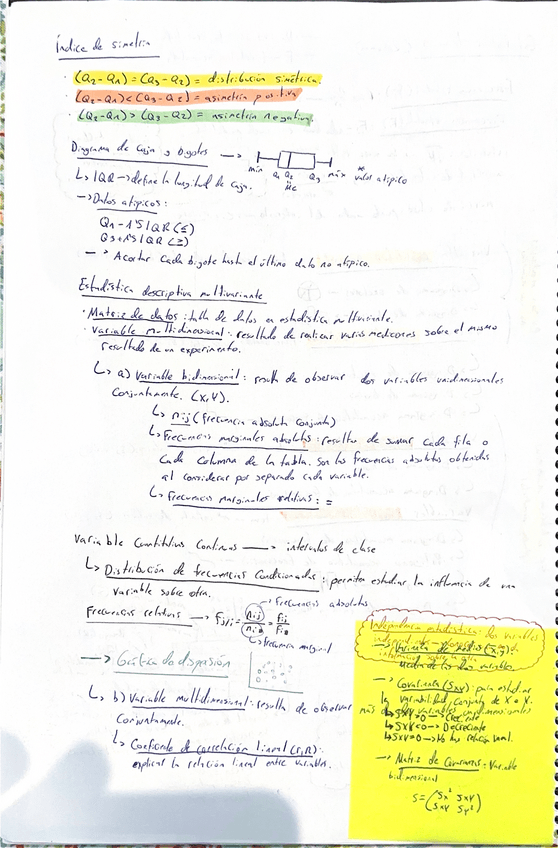 Índice de simetría
· (Q2-Q1) = (Q3-Q2) = distribución simétrica.
· (Q2-Q1) < (Q3-Q2) = asimetría positiva
· (Q2-Q1) > (Q3-Q2) = asimetría negativa.
Diagrama de caja y bigotes →
mín Q1 Q2 Q3 máx valor atípico
Me
↳ IQR → define la longitud de caja.
→ Datos atípicos:
Q1-1'5 IQR (≤)
Q3+1'5 IQR (≥)
→ Acortar cada bigote hasta el último dato no atípico.
Estadística descriptiva multivariante
· Matriz de datos: tabla de datos en estadística multivariante.
· Variable multidimensional: resultado de realizar varias mediciones sobre el mismo
resultado de un experimento.
↳ a) Variable bidimensional: resulta de observar dos variables unidimensionales
conjuntamente. (X,Y).
↳ nij (frecuencia absoluta conjunta)
↳ Frecuencias marginales absolutas: resultan de sumar cada fila o
cada columna de la tabla. Son las frecuencias absolutas obtenidas
al considerar por separado cada variable.
↳ Frecuencias marginales relativas: =
Variable Cuantitativa Continua → intervalos de clase
↳ Distribución de frecuencias Condicionadas: permiten estudiar la influencia de una
variable sobre otra.
→ Frecuencias absolutas
Frecuencias relativas → fj/i = nij/ni• = fij/fi•
↳ frecuencia marginal
→ Gráfica de dispersión
↳ b) Variable multidimensional: resulta de observar más de
variables unidimensionales
conjuntamente.
↳ Coeficiente de correlación lineal (r,R):
explicar la relación lineal entre variables.
Independencia estadística: dos variables
→ Covarianza (SXY): para estudiar
la variabilidad conjunta de X e Y.
↳ SXY>0 → Creciente
↳ SXY<0 → Decreciente
↳ SXY=0 → No hay relación lineal.
→ Matriz de Covarianzas: Variable
bidimensional
S = (Sx² SXY
SXY Sy²)